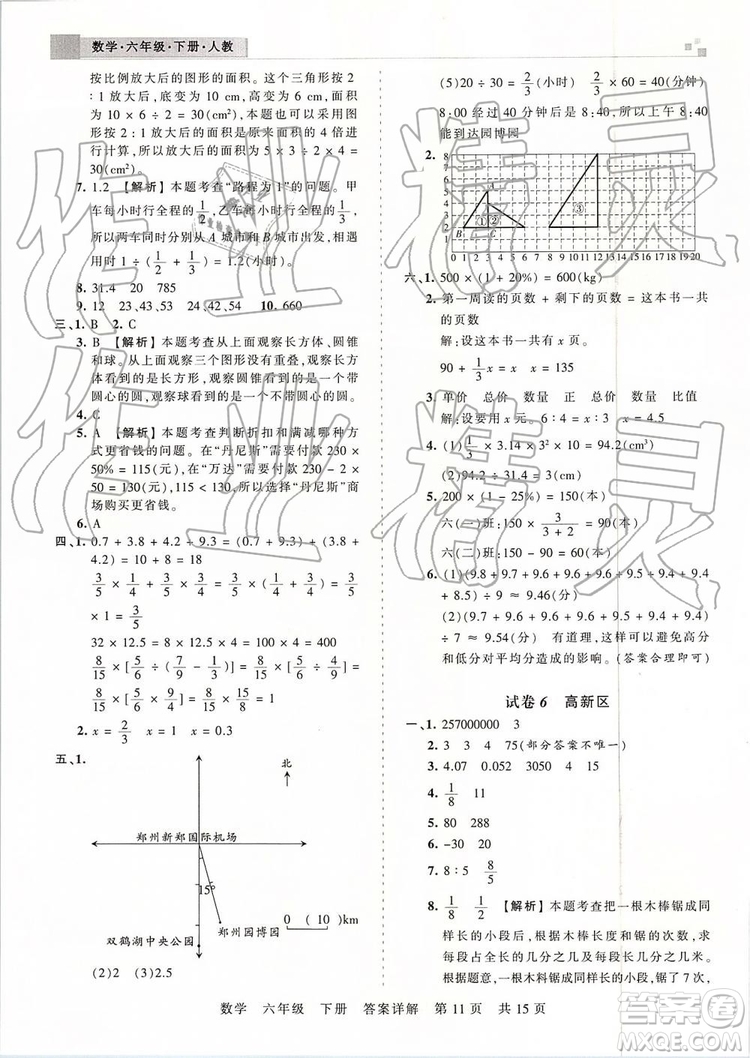 数学·六年级·下册·人教
按比例放大后的图形的面积。这个三角形按 2
∶1 放大后,底变为 10 cm,高变为 6 cm,面积为
10 × 6 ÷ 2 = 30(cm²),也可以用三角形的图
形按 2∶1 放大后的面积是原来面积的 4 倍进
行计算,所以放大后的面积为 5 × 3 ÷ 2 × 4 =
30(cm²)。
7. 1.2 【解析】本题考查“路程为 1”的问题。甲
车每小时行全程的 1/2,乙车每小时行全程的 1/3,
所以两车同时分别从 A 城市和 B 城市出发,相遇
用时 1 ÷ (1/2 + 1/3) = 1.2(小时)。
8. 31.4 20 785
9. 12 23、43、53 24、42、54 10. 660
三、1. B 2. C
3. B 【解析】本题考查从上面观察长方体、圆锥
和球。从上面观察三个图形没有重叠,观察长方
体看到的是长方形,观察圆锥看到的是一个带
圆心的圆,观察球看到的是一个不带圆心的圆。
4. C
5. A 【解析】本题考查判断折扣和满减哪种方
式更省钱的问题。在“丹尼斯”需要付款 230
× 50% = 115(元),在“万达”需要付款 230 -
50 × 2 = 130(元),115 < 130,所以在“丹尼斯”商
场购买更省钱。
6. A
四、1. 0.7 + 3.8 + 9.3 + 4.2 = (0.7 + 9.3) + (3.8 +
4.2) = 10 + 8 = 18
3/5 × 1/4 + 3/5 × 3/4 = 3/5 × (1/4 + 3/4) = 3/5
× 1 = 3/5
32 × 12.5 = 8 × 12.5 × 4 = 100 × 4 = 400
8/15 × [5/6 ÷ (7/9 - 1/3)] = 8/15 × [5/6 ÷ 4/9] =
8/15 × [5/6 × 9/4] = 8/15 × 15/8 = 1
2. x = 2/3 x = 4 x = 0.3
五、1.
北
郑州新郑国际机场
15°
郑州园博园
0 (10)km
双鹤湖中央公园
(2)2 (3)2.5
(5)20 ÷ 30 = 2/3(小时) 2/3小时 = 40(分钟)
8:00 经过 40 分钟后是 8:40,所以 9:00 前
能到达园博园
2.
8
7
6
5
4
3
2
1
0 1 2 3 4 5 6 7 8 9 10 11 12 13 14 15 16 17 18 19 20
A B C ① ② ③
六、1. 500 × (1 + 20%) = 600(kg)
2. 第一周读的页数 + 剩下的页数 = 这本书一共
的页数
解:设这本书一共有 x 页。
90 + 1/3 x = x x = 135
3. 单价 总价 数量 正 总价 数量 比值
解:设要用 x 元。6∶4 = x∶3 x = 4.5
4. (1) 1/3 × 3.14 × 3² × 10 = 94.2(cm³)
(2)94.2 ÷ 31.4 = 3(cm)
5. 200 × (1 - 25%) = 150(本)
六(一)班:150 × 3/(3 + 2) = 90(本)
六(二)班:150 - 90 = 60(本)
6. (1)(9.8 + 9.7 + 9.6 + 9.6 + 9.6 + 9.5 + 9.4 + 9.4
+ 8.5) ÷ 9 ≈ 9.46(分)
(2)(9.7 + 9.6 + 9.6 + 9.6 + 9.5 + 9.4 + 9.4)
÷ 7 ≈ 9.54(分) 有道理,这样可以减少高分
和低分对平均分造成的影响。(答案合理即可)
试卷 6 高新区
一、1. 257000000 3
2. 3 4 4 75(部分答案不唯一)
3. 4.07 0.052 3050 4 350
4. 1/8 11
5. 80 288
6. -30 20
7. 8∶5 8/5
8. 1/8 1/2 【解析】本题考查把一根木棒锯成同
样长的小段后,根木棒长度和锯的次数,求
每小段占几分之几和每小段的长度的问题。
根据题意,一根木料锯成同样长的小段用了 7 次,
数学 六年级 下册 答案详解 第 11 页 共 15 页
作业精灵
作业精灵
作业精灵
MXQE.COM